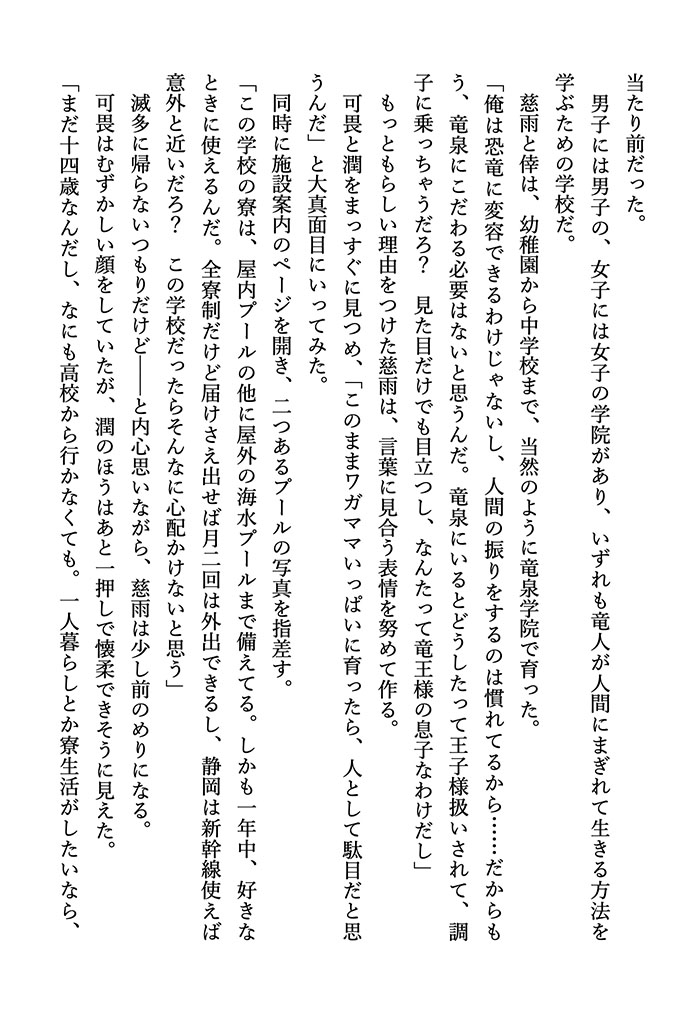 当たり前だった。
　男子には男子の、女子には女子の学院があり、いずれも竜人が人間にまぎれて生きる方法を
学ぶための学校だ。
　慈雨と倖は、幼稚園から中学校まで、当然のように竜泉学院で育った。
「俺は恐竜に変容できるわけじゃないし、人間の振りをするのは慣れてるから……だからも
う、竜泉にこだわる必要はないと思うんだ。竜泉にいるとどうしたって王子様扱いされて、調
子に乗っちゃうだろ？　見た目だけでも目立つし、なんたって竜王様の息子なわけだし」
　もっともらしい理由をつけた慈雨は、言葉に見合う表情を努めて作る。
　可畏と潤をまっすぐに見つめ、「このままワガママいっぱいに育ったら、人として駄目だと思
うんだ」と大真面目にいってみた。
　同時に施設案内のページを開き、二つあるプールの写真を指差す。
「この学校の寮は、屋内プールの他に屋外の海水プールまで備えてる。しかも一年中、好きな
ときに使えるんだ。全寮制だけど届けさえ出せば月二回は外出できるし、静岡は新幹線使えば
意外と近いだろ？　この学校だったらそんなに心配かけないと思う」
　滅多に帰らないつもりだけど――と内心思いながら、慈雨は少し前のめりになる。
　可畏はむずかしい顔をしていたが、潤のほうはあと一押しで懐柔できそうに見えた。
「まだ十四歳なんだし、なにも高校から行かなくても。一人暮らしとか寮生活がしたいなら、